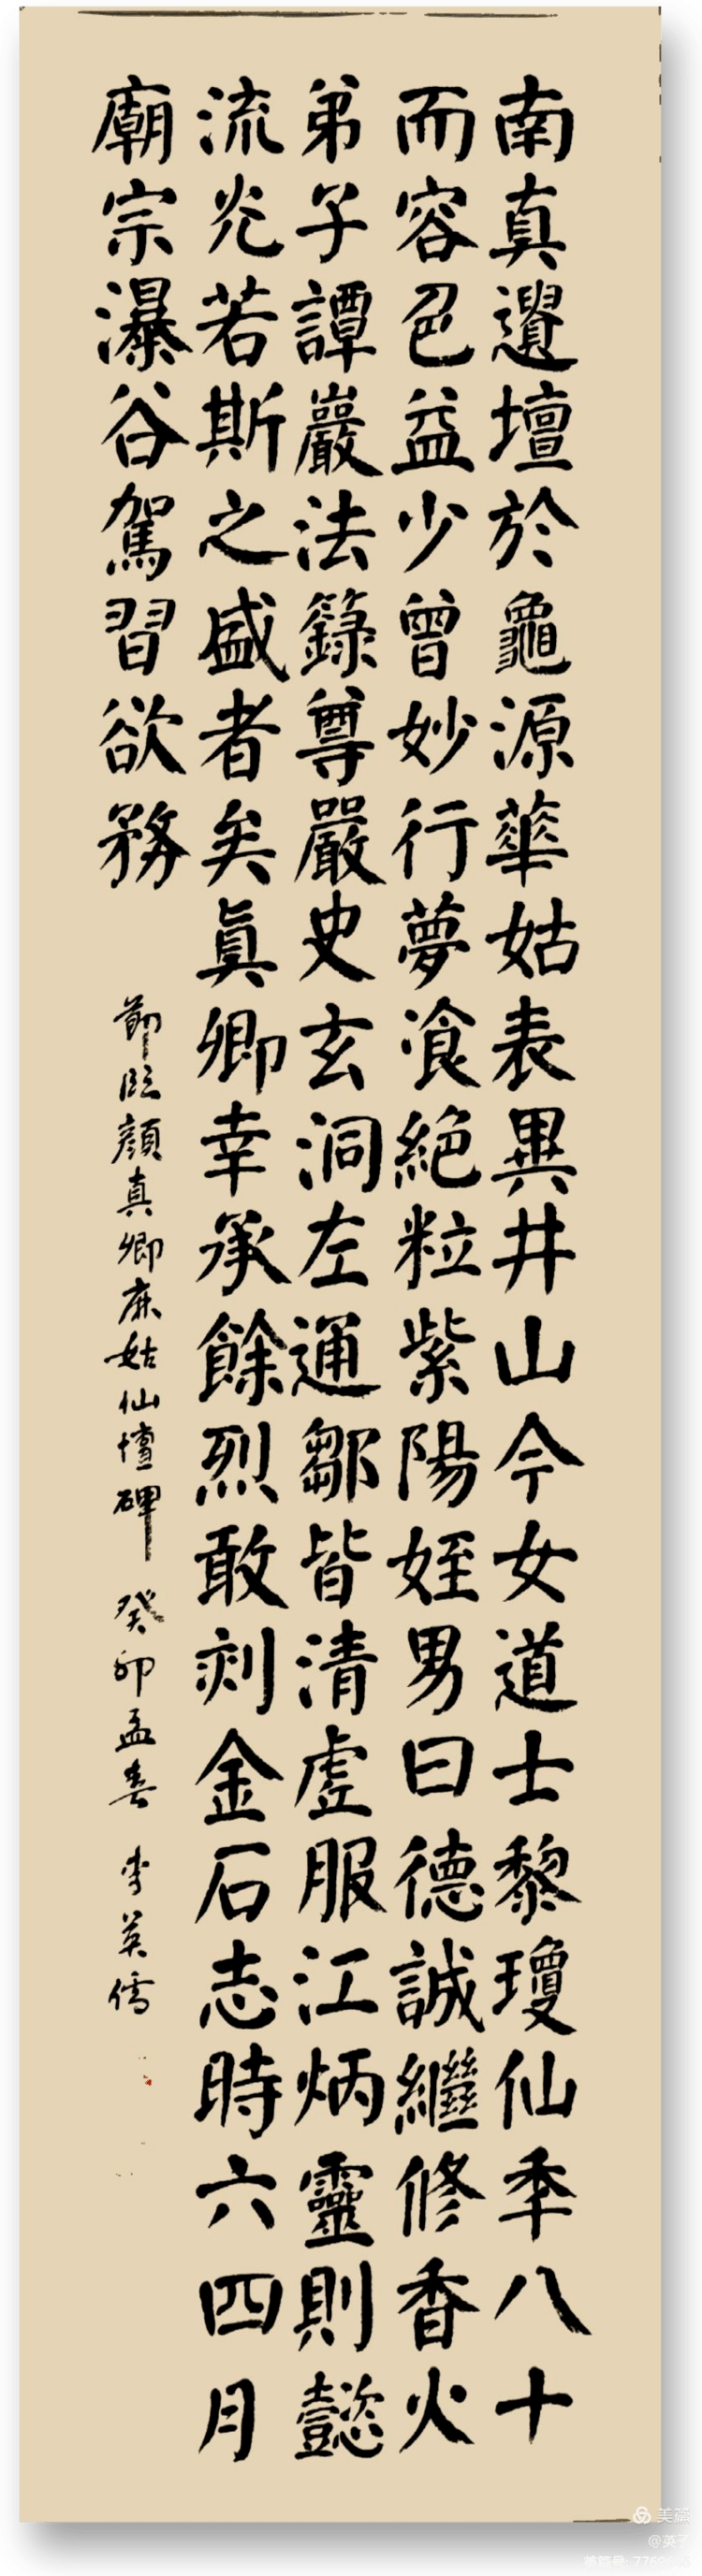 南真遺壇於龜源華姑表異井山今女道士黎瓊仙年八十
而容色益少曾妙行夢湌絕粒紫陽姪男曰德誠繼修香火
弟子譚巖法籙尊嚴史玄洞左通鄒皆清虛服江炳靈則懿
流光若斯之盛者矣真卿幸承餘烈敢刻金石志時六四月
廟宗瀑谷駕習欲務
節臨顏真卿麻姑仙壇碑 癸卯孟春 李英儒
美篇
@英子